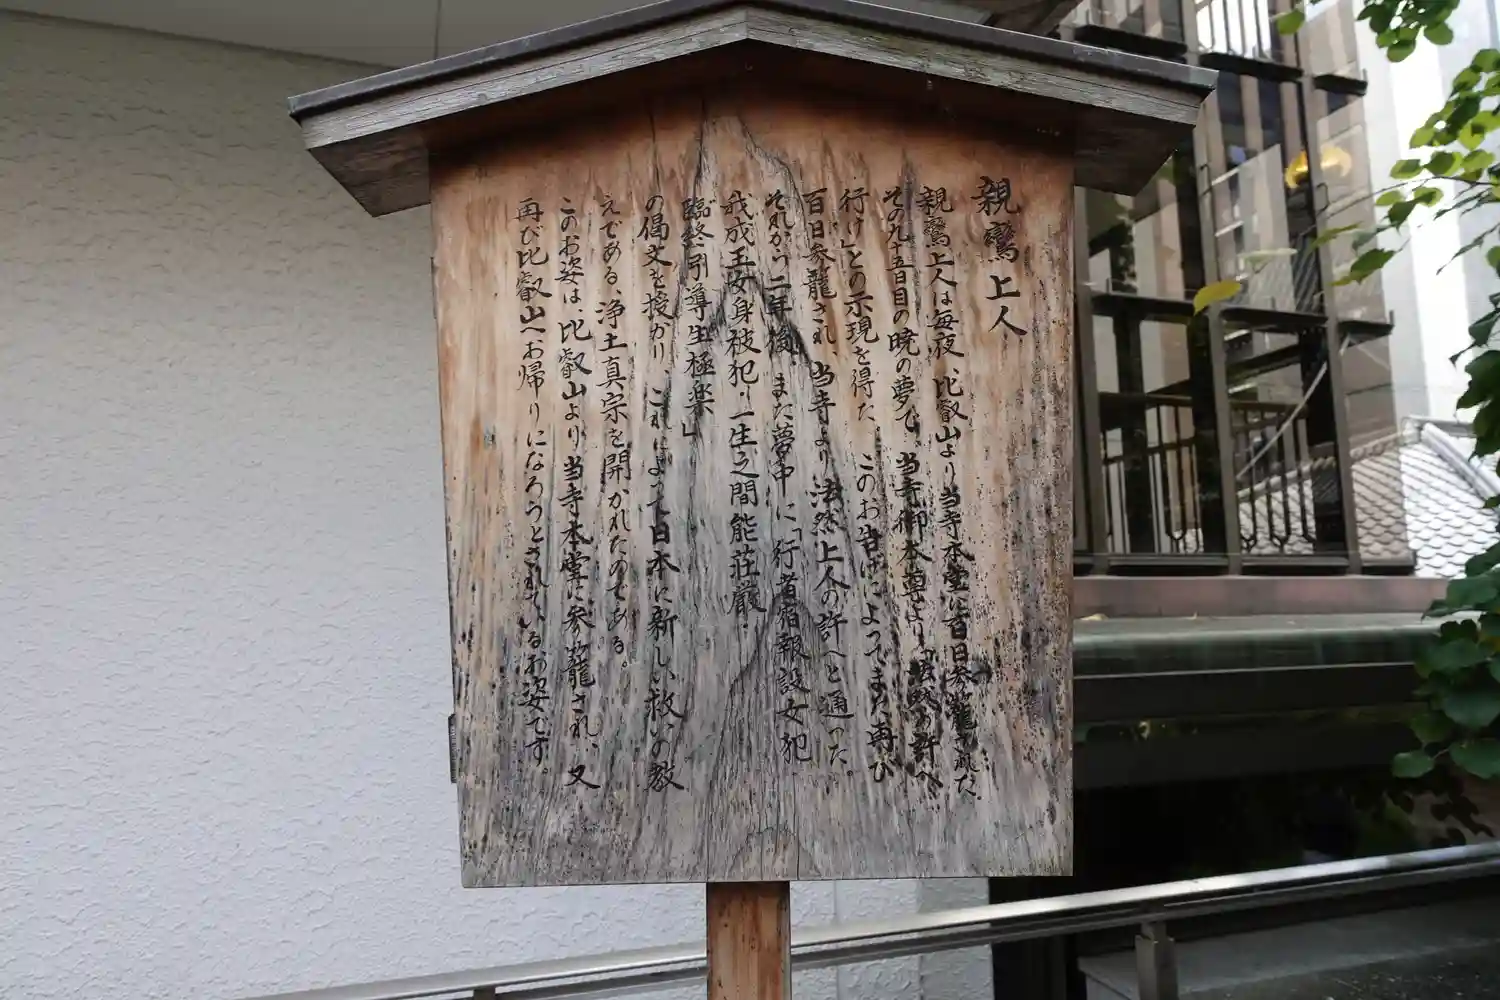 親鸞上人
親鸞上人は毎夜、比叡山より当寺本堂に百日参籠された。
その九十五日目の暁の夢で、当寺御本尊より「法然の許へ
行け」との示現を得た。このお告げによってまた再び
百日参籠され、当寺より法然上人の許へと通った。
それから二年後、また夢中に「行者宿報設女犯
我成玉女身被犯・一生之間能荘厳・
臨終引導生極楽」
の偈文を授かり、これによって日本に新しい救いの教
えである、浄土真宗を開かれたのである。
このお姿は、比叡山より当寺本堂に参籠され、又
再び比叡山へお帰りになろうとされているお姿です。